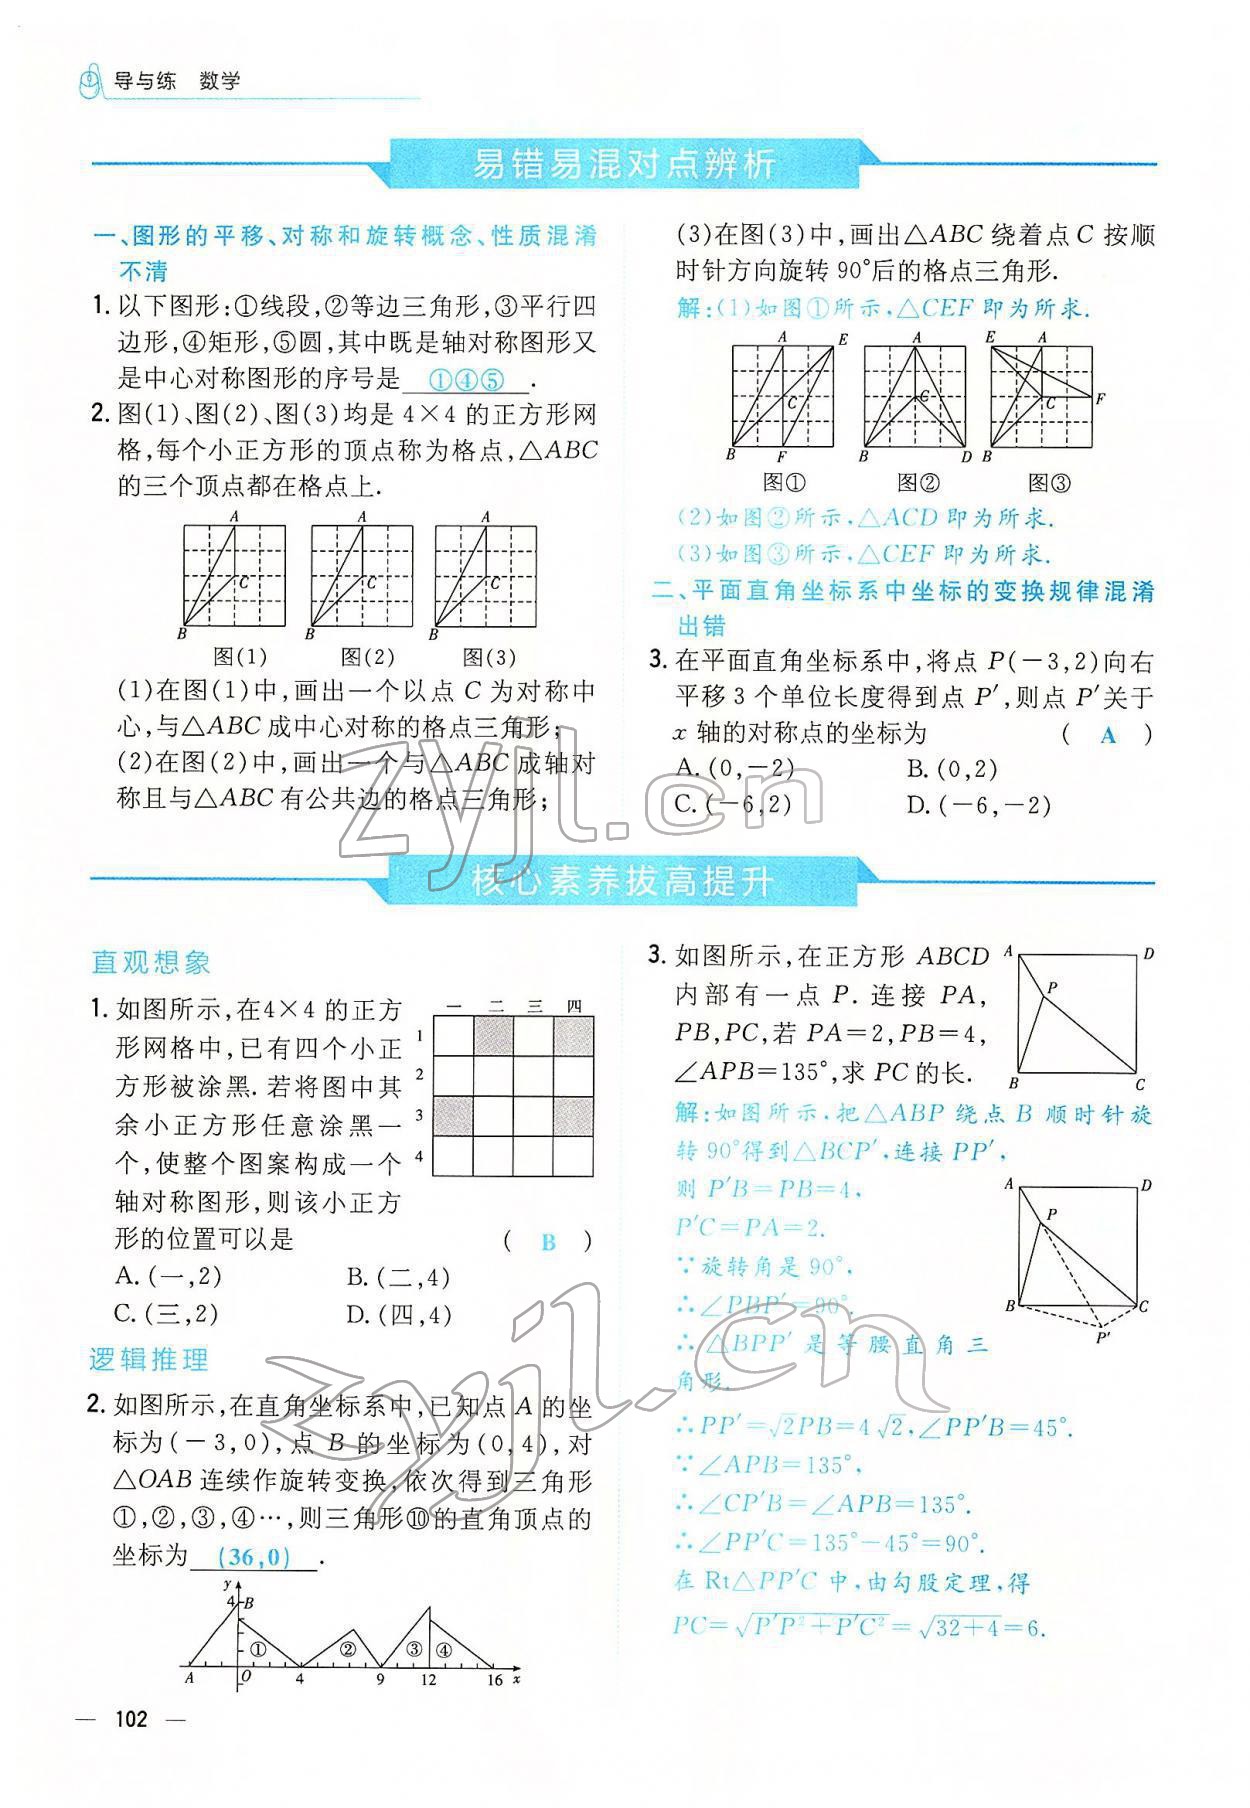 导与练 数学
易错易混对点辨析
一、图形的平移、对称和旋转概念、性质混淆
不清
1. 以下图形:①线段,②等边三角形,③平行四
边形,④矩形,⑤圆,其中既是轴对称图形又
是中心对称图形的序号是 ①④⑤ .
2. 图(1)、图(2)、图(3)均是 4×4 的正方形网
格,每个小正方形的顶点称为格点,△ABC
的三个顶点都在格点上.
A A A
C C C
B B B
图(1) 图(2) 图(3)
(1)在图(1)中,画出一个以点 C 为对称中
心,与△ABC 成中心对称的格点三角形;
(2)在图(2)中,画出一个与△ABC 成轴对
称且与△ABC 有公共边的格点三角形;
(3)在图(3)中,画出△ABC 绕着点 C 按顺
时针方向旋转 90°后的格点三角形.
解:(1)如图①所示,△CEF 即为所求.
A E A E A
C C C F
B F B D B
图① 图② 图③
(2)如图②所示,△ACD 即为所求.
(3)如图③所示,△CEF 即为所求.
二、平面直角坐标系中坐标的变换规律混淆
出错
3. 在平面直角坐标系中,将点 P(-3,2)向右
平移 3 个单位长度得到点 P′,则点 P′关于
x 轴的对称点的坐标为 ( A )
A.(0,-2) B.(0,2)
C.(-6,2) D.(-6,-2)
核心素养拔高提升
直观想象
1. 如图所示,在4×4 的正方
形网格中,已有四个小正
方形被涂黑.若将图中其
余小正方形任意涂黑一
个,使整个图案构成一个
轴对称图形,则该小正方
形的位置可以是 ( B )
一 二 三 四
1
2
3
4
A.(一,2) B.(二,4)
C.(三,2) D.(四,4)
逻辑推理
2. 如图所示,在直角坐标系中,已知点 A 的坐
标为(-3,0),点 B 的坐标为(0,4),对
△OAB 连续作旋转变换,依次得到三角形
①,②,③,④…,则三角形⑩的直角顶点的
坐标为 (36,0) .
y
4 B
① ② ③ ④
A O 4 9 12 16 x
3. 如图所示,在正方形 ABCD
内部有一点 P. 连接 PA,
PB,PC,若 PA=2,PB=4,
∠APB=135°,求 PC 的长.
A D
P
B C
解:如图所示,把△ABP 绕点 B 顺时针旋
转 90°得到△BCP′,连接 PP′,
则 P′B=PB=4,
P′C=PA=2.
∵旋转角是 90°,
∴∠PBP′=90°.
∴△BPP′ 是等腰直角三
角形.
A D
P
B C
P′
∴PP′=√2PB=4√2,∠PP′B=45°.
∵∠APB=135°,
∴∠CP′B=∠APB=135°.
∴∠PP′C=135°-45°=90°.
在 Rt△PP′C 中,由勾股定理,得
PC=√P′P²+P′C²=√32+4=6.
— 102 —
zyjl.cn
zyjl.cn